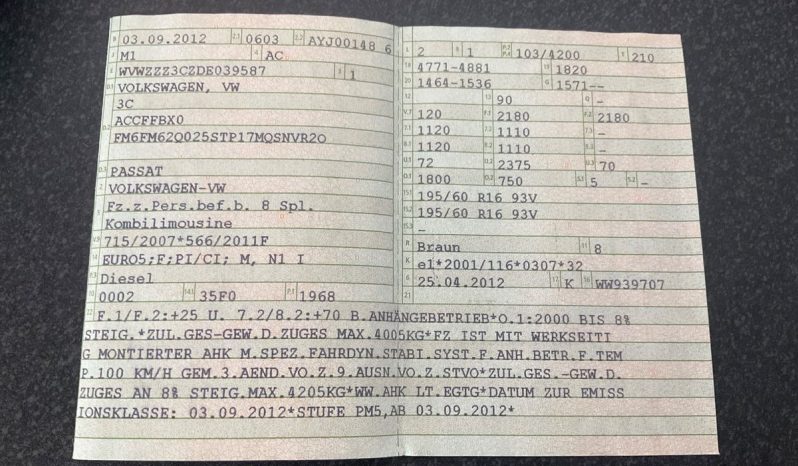 B 03.09.2012 2.1 0603 2.2 AYJ00148 6
J M1 4 AC
E WVWZZZ3CZDE039587 3 1
D.1 VOLKSWAGEN, VW
3C
D.2 ACCFFBX0
FM6FM62Q025STP17MQSNVR2O
D.3 PASSAT
2 VOLKSWAGEN-VW
5 Fz.z.Pers.bef.b. 8 Spl.
Kombilimousine
V.9 715/2007*566/2011F
14 EURO5;F;PI/CI; M, N1 I
P.3 Diesel
10 0002 14.1 35F0 P.1 1968
L 2 9 1 P.2 P.4 103/4200 T 210
18 4771-4881 19 1820
20 1464-1536 G 1571--
12 - 13 90 Q -
V.7 120 F.1 2180 F.2 2180
7.1 1120 7.2 1110 7.3 -
8.1 1120 8.2 1110 8.3 -
U.1 72 U.2 2375 U.3 70
O.1 1800 O.2 750 S.1 5 S.2 -
15.1 195/60 R16 93V
15.2 195/60 R16 93V
15.3 -
R Braun 11 8
K e1*2001/116*0307*32
6 25.04.2012 17 K 16 WW939707
21
22 F.1/F.2:+25 U. 7.2/8.2:+70 B.ANHÄNGEBETRIEB*O.1:2000 BIS 8%
STEIG.*ZUL.GES-GEW.D.ZUGES MAX.4005KG*FZ IST MIT WERKSEITI
G MONTIERTER AHK M.SPEZ.FAHRDYN.STABI.SYST.F.ANH.BETR.F.TEM
P.100 KM/H GEM.3.AEND.VO.Z.9.AUSN.VO.Z.STVO*ZUL.GES.-GEW.D.
ZUGES AN 8% STEIG.MAX.4205KG*WW.AHK LT.EGTG*DATUM ZUR EMISS
IONSKLASSE: 03.09.2012*STUFE PM5,AB 03.09.2012*